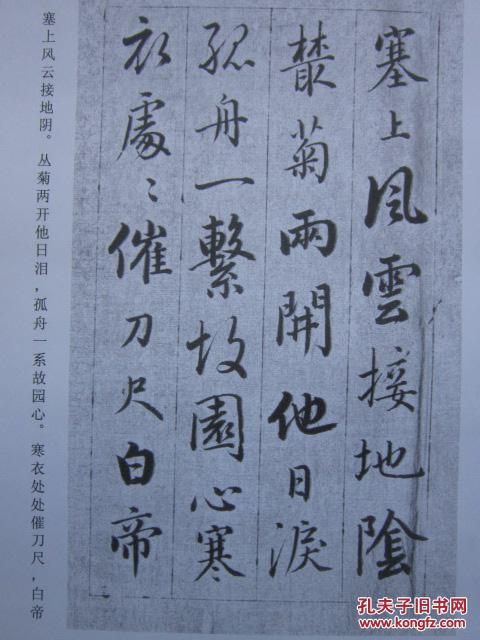 塞上風雲接地陰
叢菊兩開他日淚
孤舟一繫故園心寒
衣處〻催刀尺白帝
塞上风云接地阴。丛菊两开他日泪，孤舟一系故园心。寒衣处处催刀尺，白帝
孔夫子旧书网
www.kongfz.com